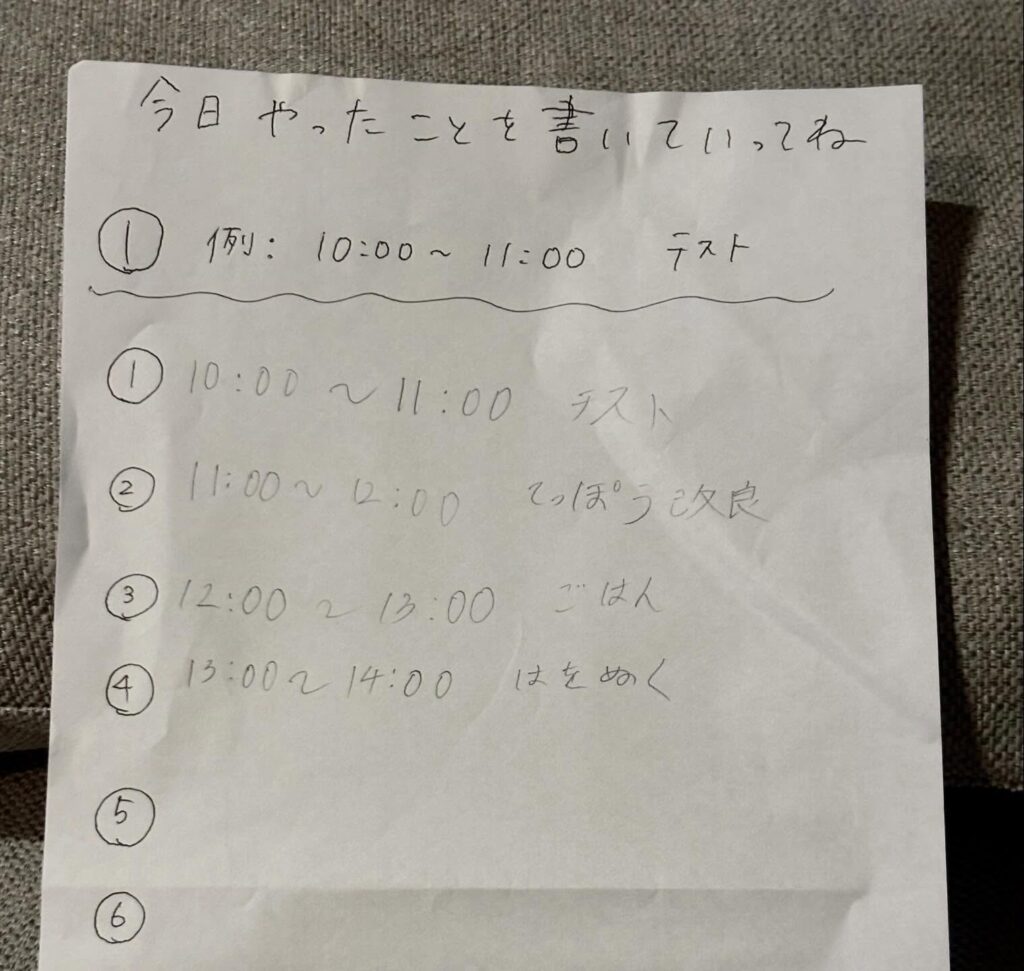 今日やったことを書いていってね
① 例: 10:00~11:00 テスト
① 10:00~11:00 テスト
② 11:00~12:00 てっぽう改良
③ 12:00~13:00 ごはん
④ 13:00~14:00 はをぬく
⑤
⑥